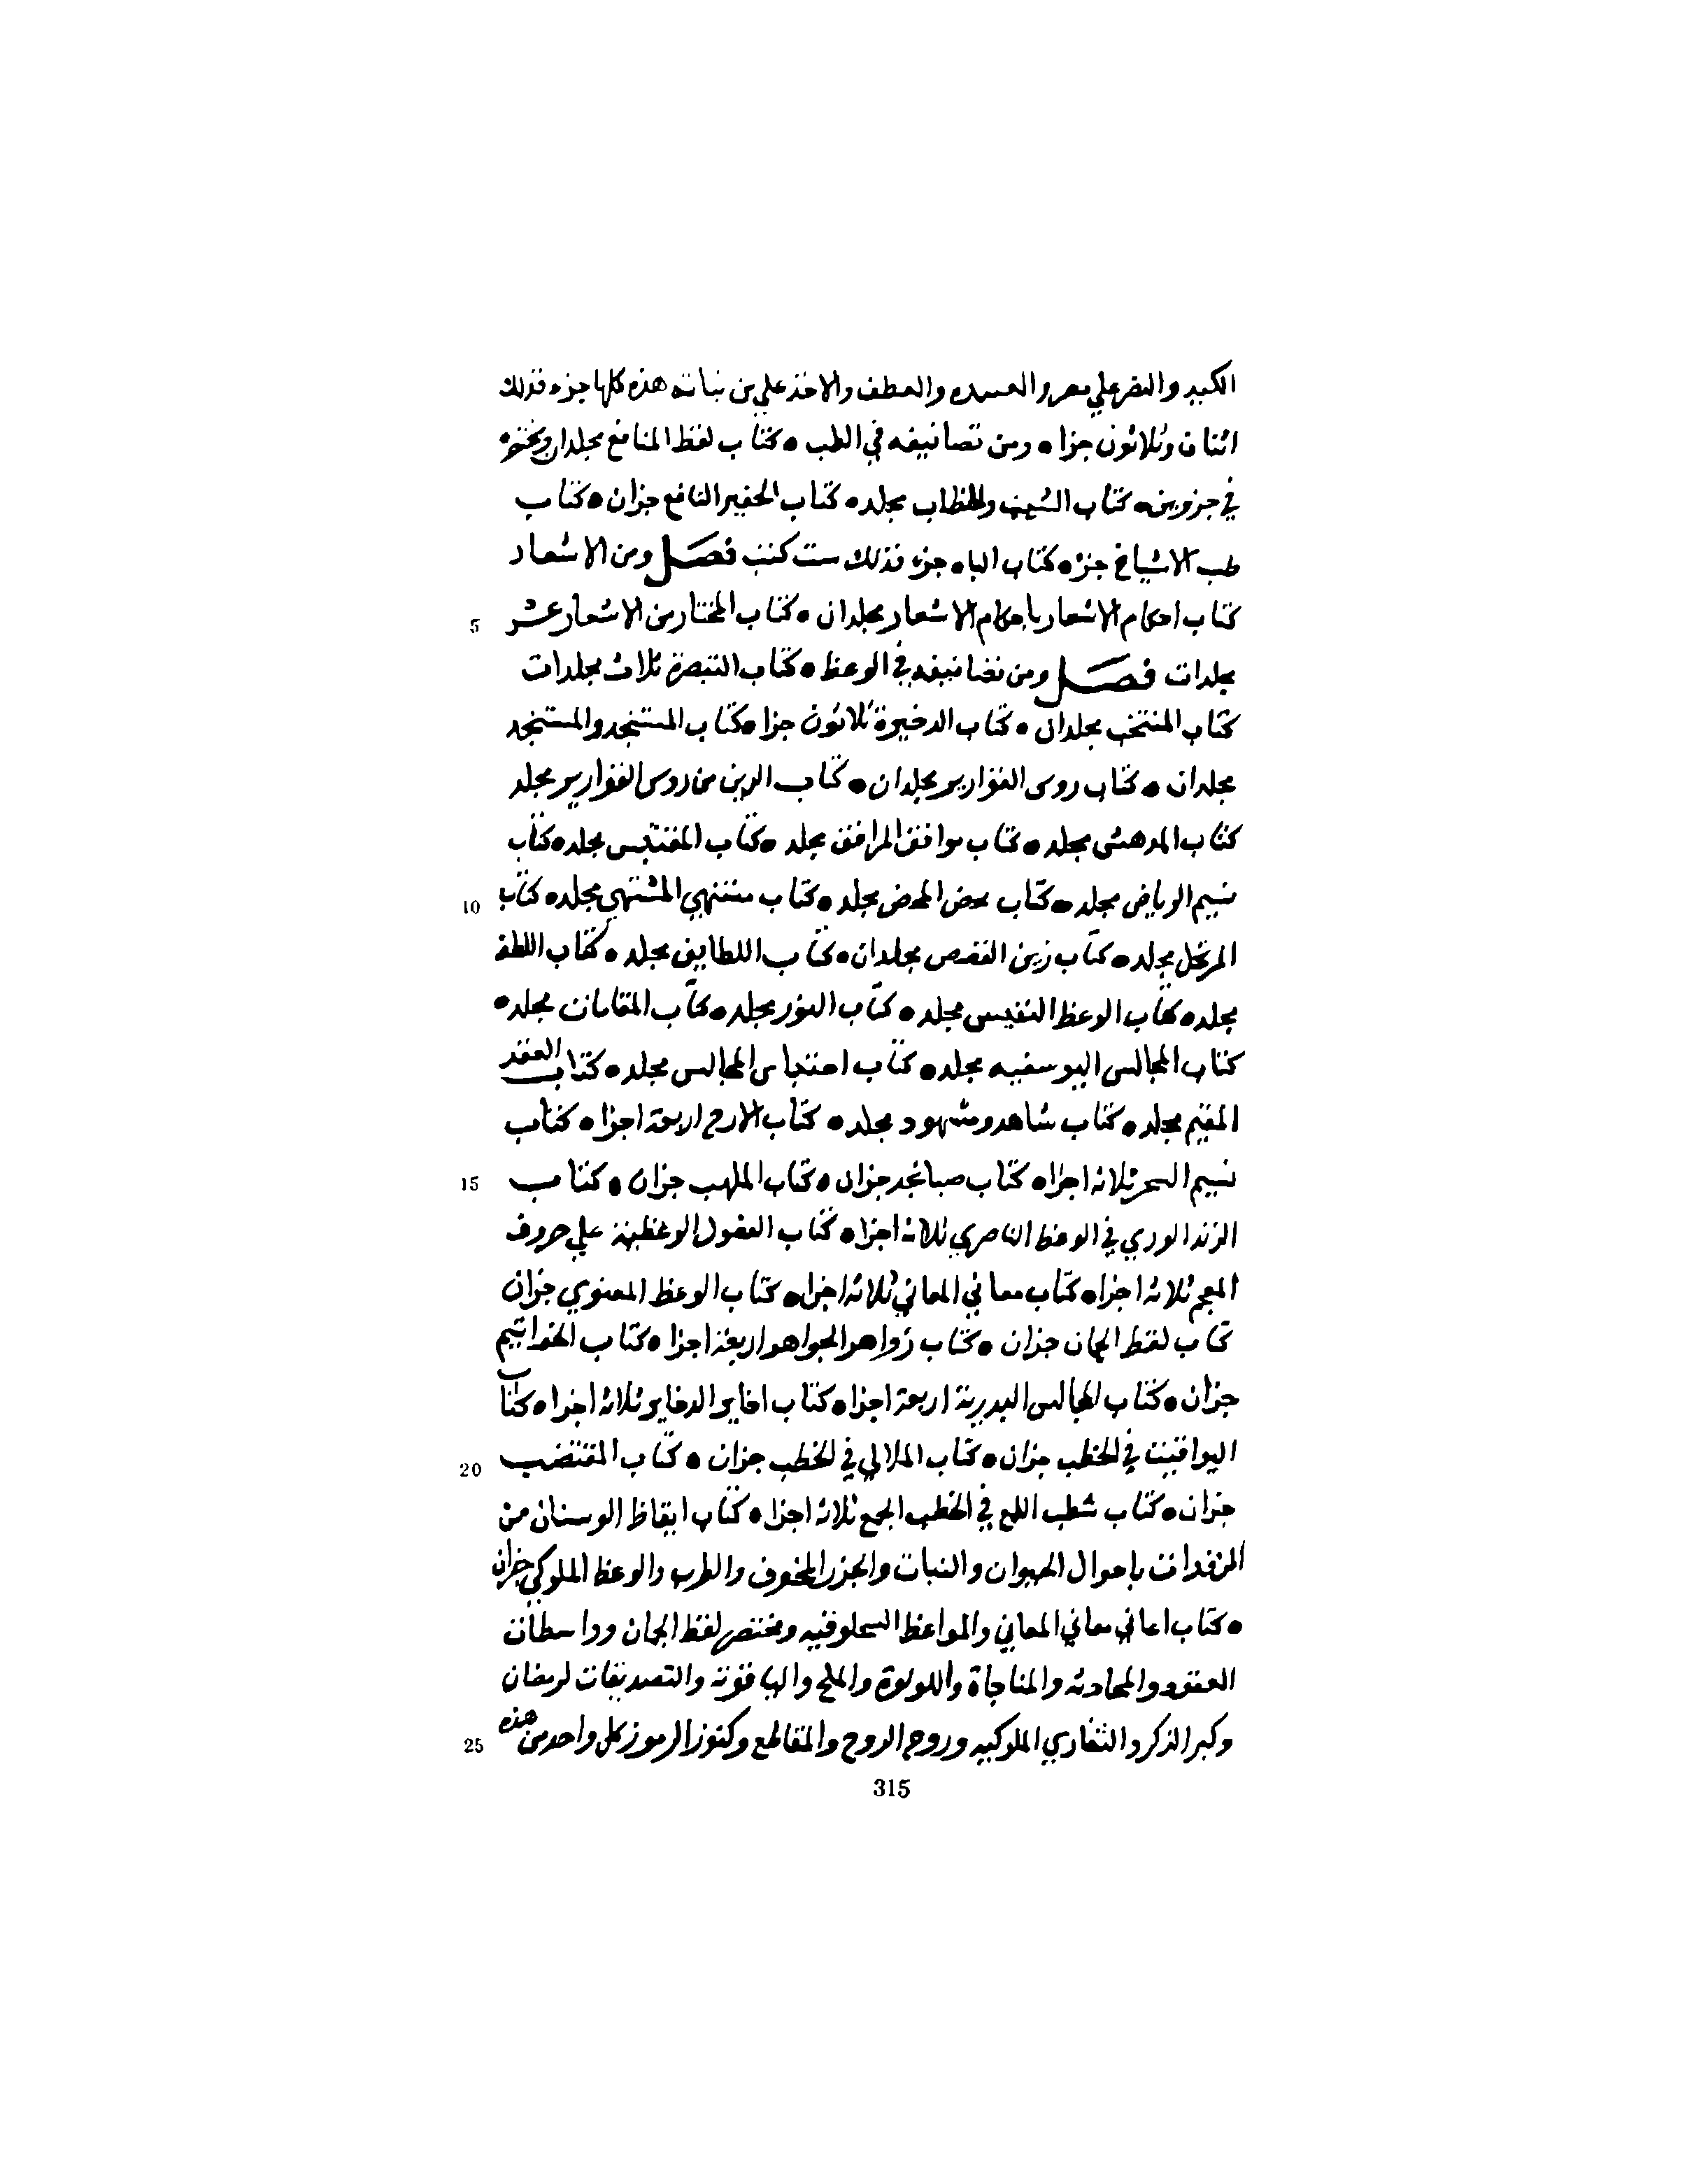 الكبير والنصر علي مصر والعسده والعطف والاخذ علي بن نباته هذه كلها جزء فذلك
اثنان وثلاثون جزا ه ومن تصانيفه في الطب ه كتاب لقط المنافع مجلدان ومختصره
في جزوين ه كتاب الشيب والخضاب مجلد ه كتاب الحقير النافع جزان ه كتاب
طب الاشياخ جزء ه كتاب الباه جزء فذلك ست كتب فصل ومن الاشعار
كتاب احكام الاشعار باحكام الاشعار مجلدان ه كتاب المختار من الاشعار عشر 5
مجلدات فصل ومن تصانيفه في الوعظ ه كتاب التبصرة ثلاث مجلدات
كتاب المنتخب مجلدان ه كتاب الدخيرة ثلاثون جزا ه كتاب المستنجد والمستنجد
مجلدان ه كتاب روس القوارير مجلدان ه كتاب الرين من روس القوارير مجلد
كتاب المدهش مجلد ه كتاب موافق المرافق مجلد ه كتاب المقتبس مجلد ه كتاب
نسيم الرياض مجلد ه كتاب محض المحض مجلد ه كتاب منتهي المشتهي مجلد ه كتاب 10
المرتجل مجلد ه كتاب زين القصص مجلدان ه كتاب اللطايف مجلد ه كتاب اللطف
مجلد ه كتاب الوعظ النفيس مجلد ه كتاب النور مجلد ه كتاب المقامات مجلد ه
كتاب المجالس اليوسفيه مجلد ه كتاب احتباس المجالس مجلد ه كتاب العقد
المقيم مجلد ه كتاب شاهد ومشهود مجلد ه كتاب الارج اربعة اجزا ه كتاب
نسيم السحر ثلاثه اجزا ه كتاب صبا نجد جزان ه كتاب الملهب جزان ه كتاب 15
الزند الوري في الوعظ الناصري ثلاثه اجزا ه كتاب الفصول الوعظية علي حروف
المعجم ثلاثه اجزا ه كتاب معاني المعاني ثلاثه اجزا ه كتاب الوعظ المعنوي جزان
كتاب لقط الجمان جزان ه كتاب زواهر الجواهر اربعة اجزا ه كتاب الخواتيم
جزان ه كتاب المجالس البدرية اربعة اجزا ه كتاب اخاير الدخاير ثلاثه اجزا ه كتاب
اليواقيت في الخطب جزان ه كتاب الملالي في الخطب جزان ه كتاب المقتضب 20
جزان ه كتاب شطب اللمع في الخطب الجمع ثلاثه اجزا ه كتاب ايقاظ الوسنان من
المرقدات باحوال الحيوان والنبات والجزر المخوف والطرب والوعظ الملوكي جزان
ه كتاب اعاني معاني المعاني والمواعظ السلجوقيه ومختصر لقط الجمان وواسطات
العقود والمحادثه والمناجاة واللولوة والملح والياقوتة والتصديقات لرمضان
وكبر الذكر والتغازي الملوكيه وروح الروح والمقاطع وكنوز الرموز كل واحد من هذه 25
315